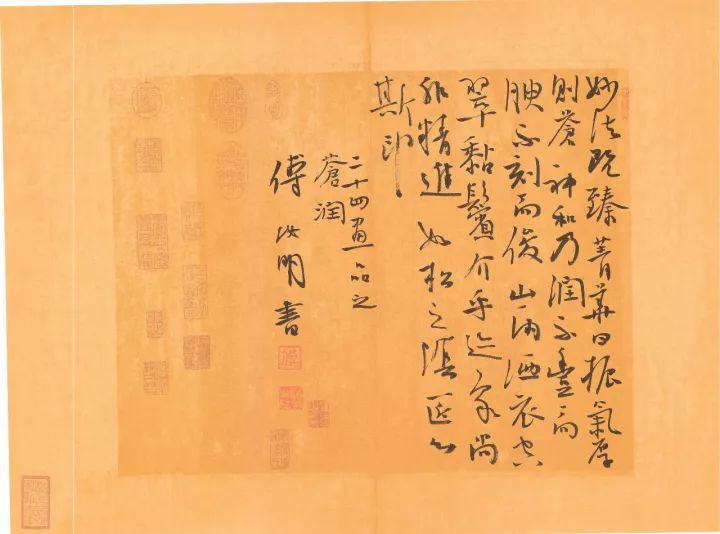 妙法既臻菁華日振氣厚
則蒼神和乃潤不豐而
腴不刻而俊山雨洒衣空
翠黏鬢介乎迹象尚
非精進如松之陰匪心
斯印
二十四畫品之
蒼潤
傅汝明書